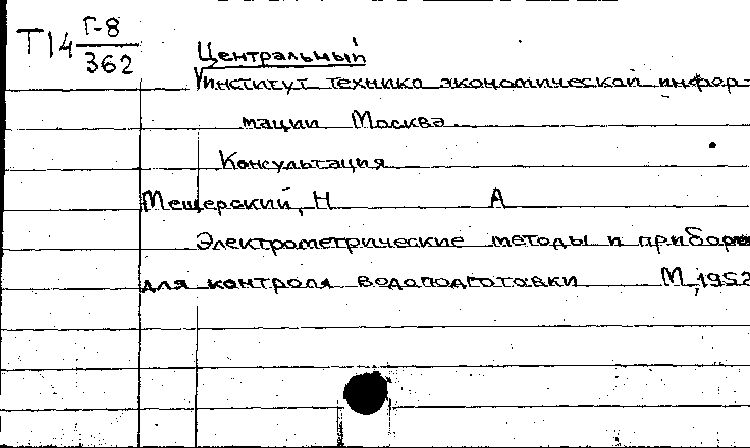 Т14 Г-8
362
Центральный
Институт технико экономической инфор-
мации Москва
Консультация
Мещерский, Н А
Электрометрические методы и приборы
для контроля водоподготовки М, 1952